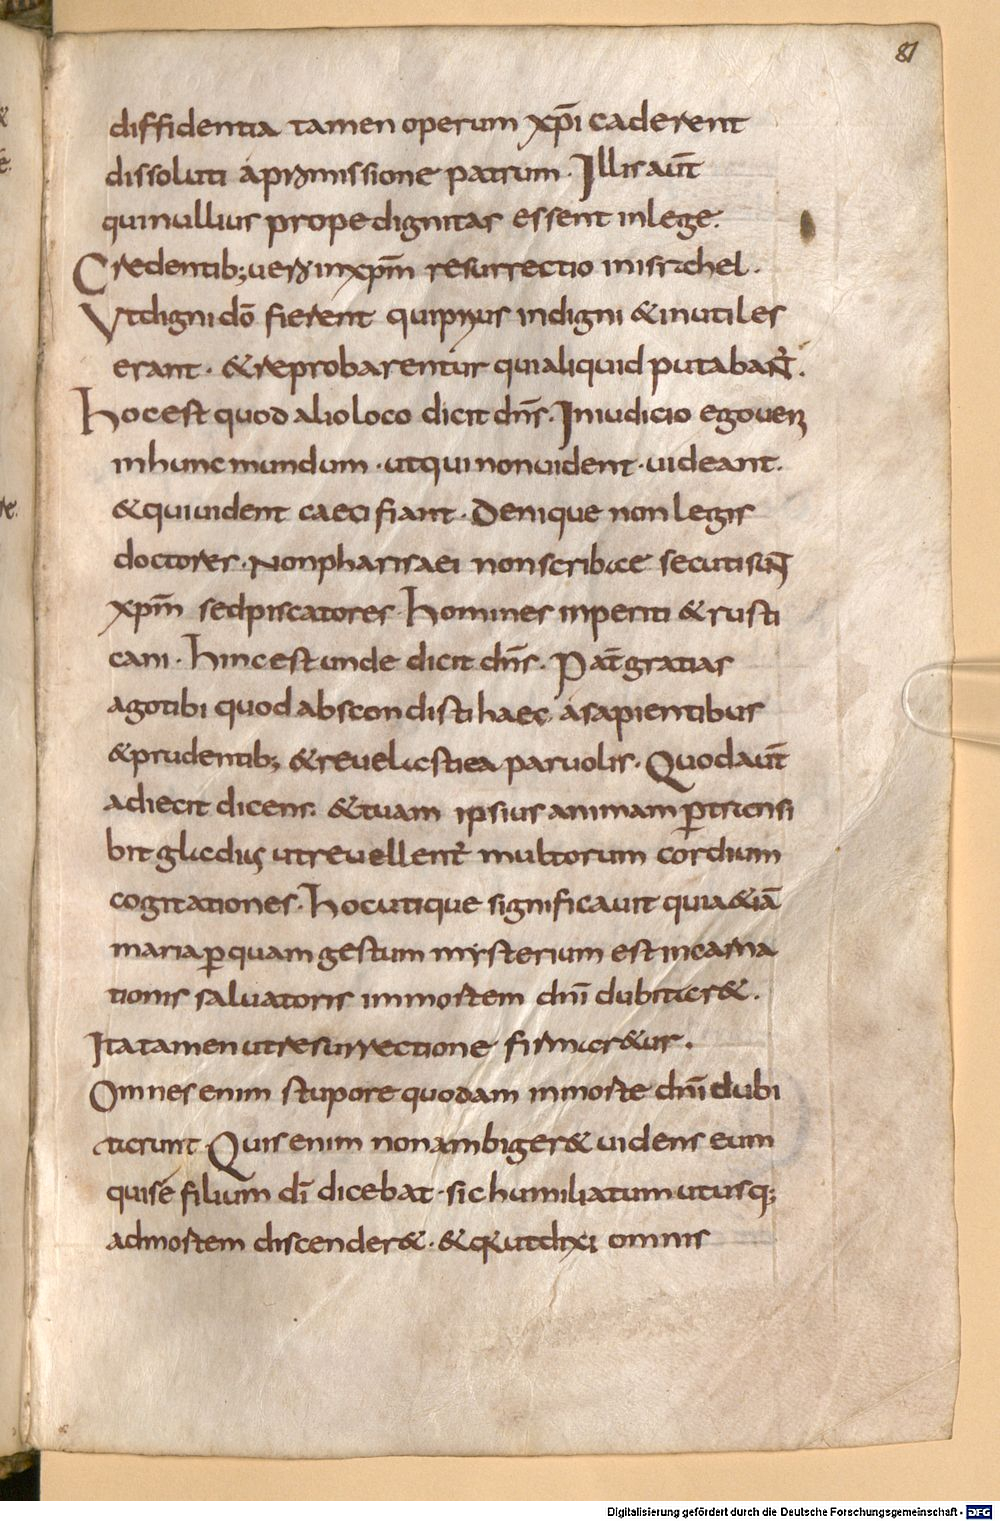 81
diffidentia tamen operum xp̄i caderent
dissoluti apromissione patrum. Illis aut̄
qui nullius prope dignitas essent inlege.
Credentib; uero inxpm̄ resurrectio inisrahel.
Ut digni dō fierent qui prius indigni & inutiles
erant. & reprobarentur quialiquid putabant̄.
Hoc est quod alio loco dicit dn̄s. In iudicio ego ueni
inhunc mundum. utqui non uident. uideant.
& qui uident caeci fiant. Denique non legis
doctores. Non pharisaei non scribae secuti sunt
xpm̄ sed piscatores. Homines inperiti & rusti
cani. Hinc est unde dicit dn̄s. Pat̄ gratias
ago tibi quod abscondisti haec asapientibus
& prudentib; & reuelasti ea paruolis. Quod aut̄
adiecit dicens. & tuam ipsius animam p̄transi
bit gladius utreuellent̄ multorum cordium
cogitationes. Hoc utique significauit quia & iā
maria p̱ quam gestum mysterium est incarna
tionis saluatoris inmortem dn̄i dubitar&.
Ita tamen utresurrectione firmar&ur.
Omnes enim stupore quodam inmorte dn̄i dubi
tarunt. Quis enim non ambiger& uidens eum
quise filium dī dicebat. sic humiliatum utusq;
admortem discender&. & q utdixi omnis
Digitalisierung gefördert durch die Deutsche Forschungsgemeinschaft - DFG